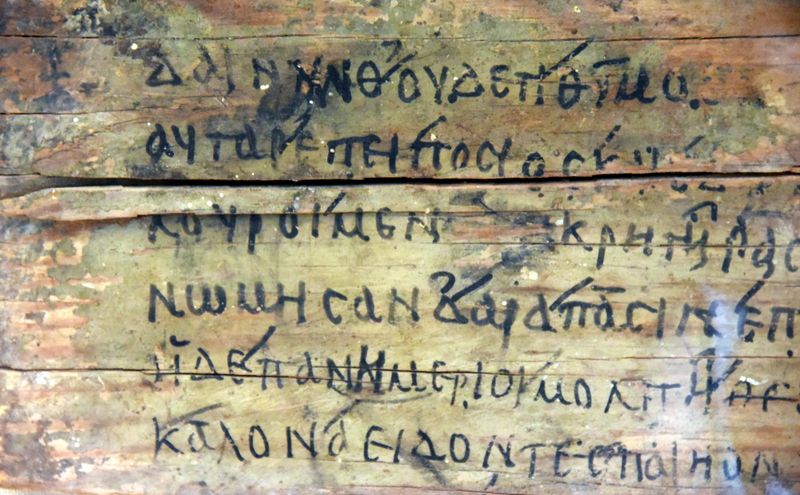 ΔΑΙΝΝΝΘΟΥΔΕΠΘΥΜΟ
ΑΥΤΑΡΕΠΕΙΠΟCΙΟCΚ
ΚΟΥΡΟΙΜΕΝ ΚΡΗΤΗΡΑC
ΝΩΜΗCΑΝΔΑΡΑΠΑCΙΝΕΠ
ΗΔΕΠΑΝΗΜΕΡΙΟΙΜΟΛΠΗΘΕ
ΚΑΛΟΝΑΕΙΔΟΝΤΕCΠΑΙΗΟΝ